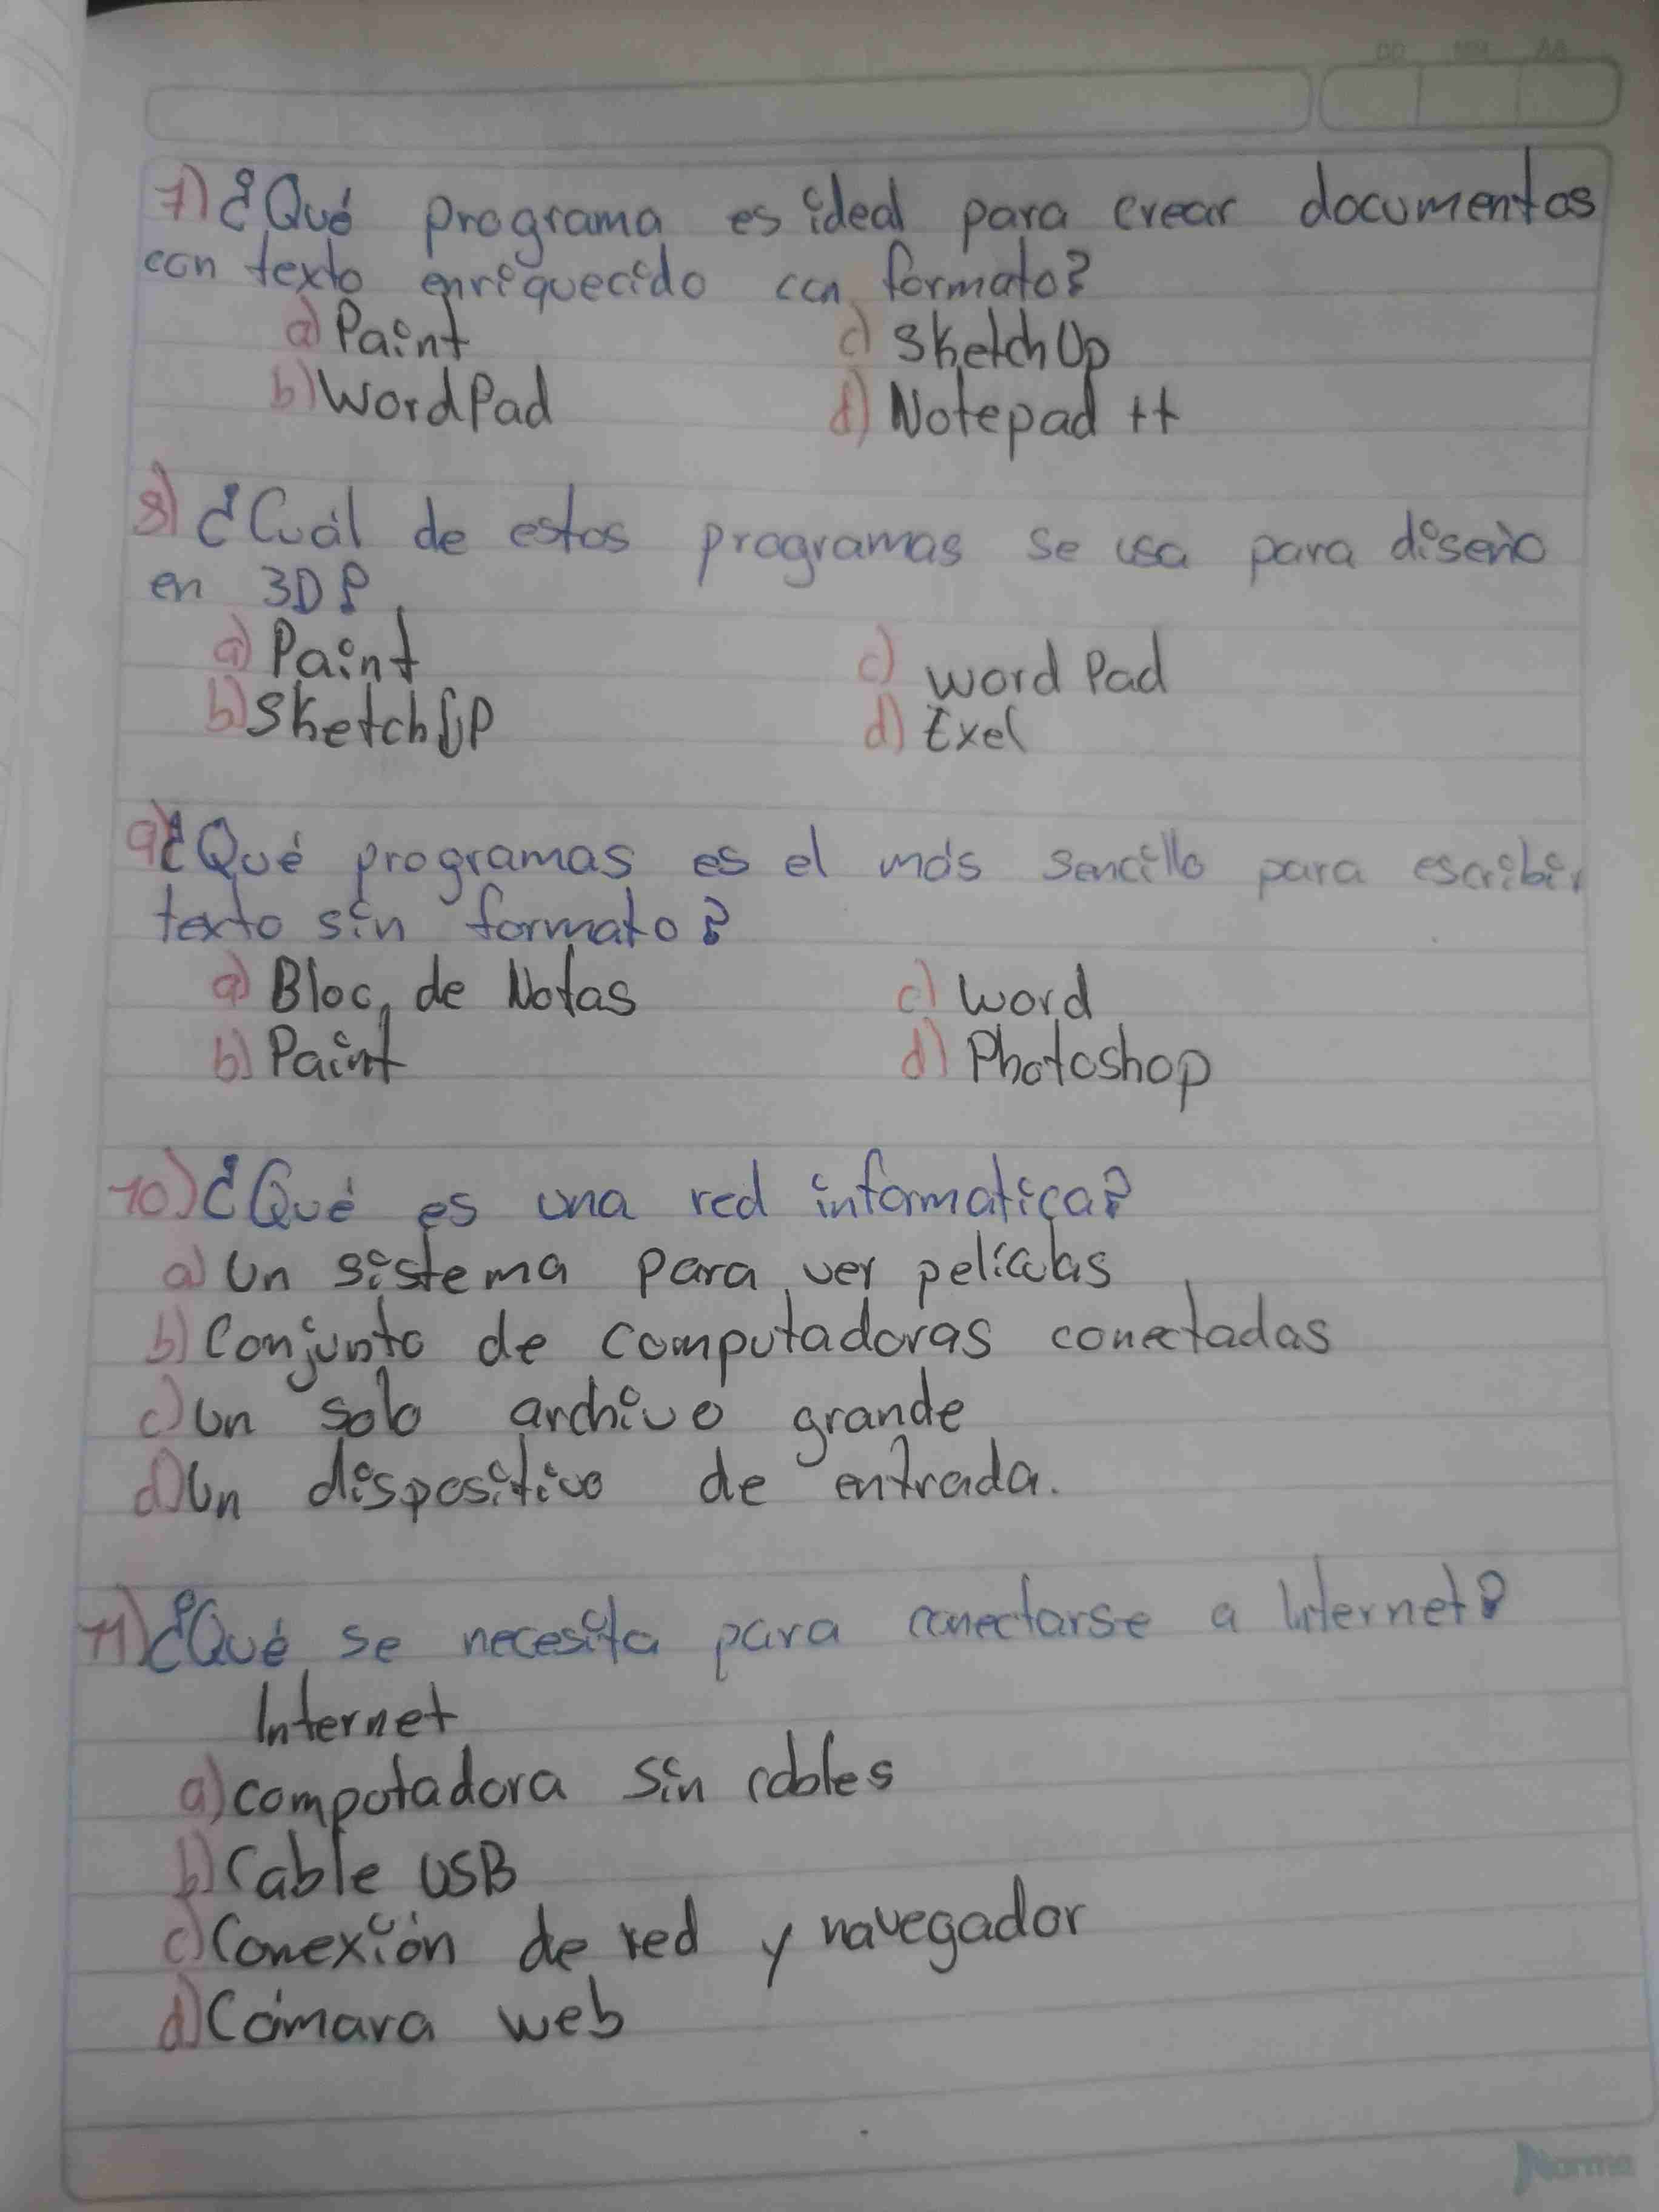 DD MM AA
7) ¿Qué programa es ideal para crear documentos
con texto enriquecido con formato?
a) Paint c) SketchUp
b) WordPad d) Notepad ++
8) ¿Cuál de estos programas se usa para diseño
en 3D?
a) Paint c) word Pad
b) SketchUP d) Exel
9) ¿Qué programas es el más sencillo para escribir
texto sin formato?
a) Bloc de Notas c) Word
b) Paint d) Photoshop
10) ¿Qué es una red informatica?
a) Un sistema para ver películas
b) Conjunto de computadoras conectadas
c) Un solo archivo grande
d) Un dispositivo de entrada.
11) ¿Qué se necesita para conectarse a Internet?
Internet
a) computadora sin cables
b) Cable USB
c) Conexión de red y navegador
d) Cámara web
Norma